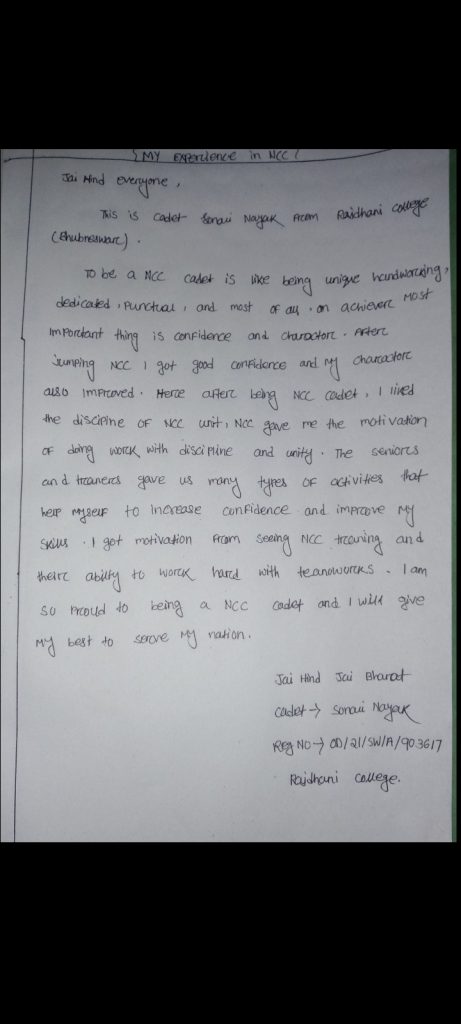 MY Experience in NCC
Jai Hind everyone,
This is cadet Sonali Nayak from Rajdhani college
(Bhubneswarc).
TO be a NCC cadet is like being unique handworcking,
dedicated, Punctual, and most of all. an achieverc Most
Important thing is confidence and charactorc. Afterc
jumping NCC I got good confidence and My charcactorc
also Improved. Herce afterc being NCC cadet, I liked
the discipine OF NCC unit, NCC gave me the motivation
OF doing worck with discipline and unity. The seniorcs
and traanercs gave us many types OF activities that
help Myself to increase confidence and improve My
skills. I got motivation from seeing NCC trcaning and
theirc ability to worck hard with teamworcks. I am
so Proud to being a NCC cadet and I will give
My best to serve My nation.
Jai Hind Jai Bharat
cadet → Sonali Nayak
Reg NO → OD/21/SW/A/903617
Rajdhani College.